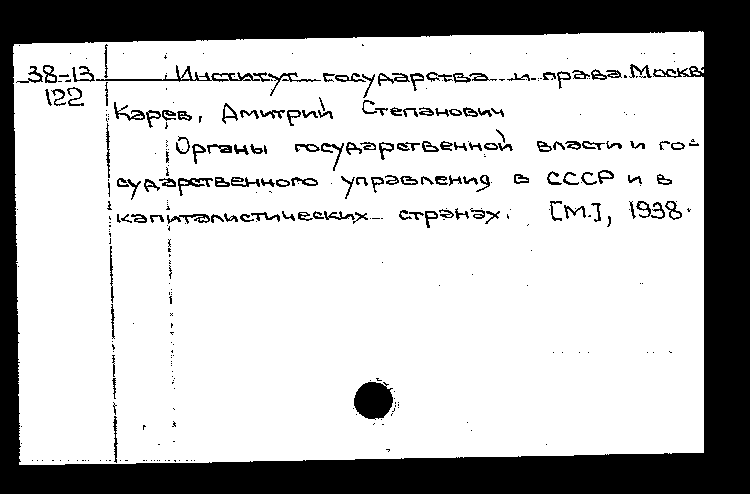 38-13 Институт государства и права. Москва
122
Карев, Дмитрий Степанович
Органы государственной власти и го-
сударственного управления в СССР и в
капиталистических странах. [М.], 1938.